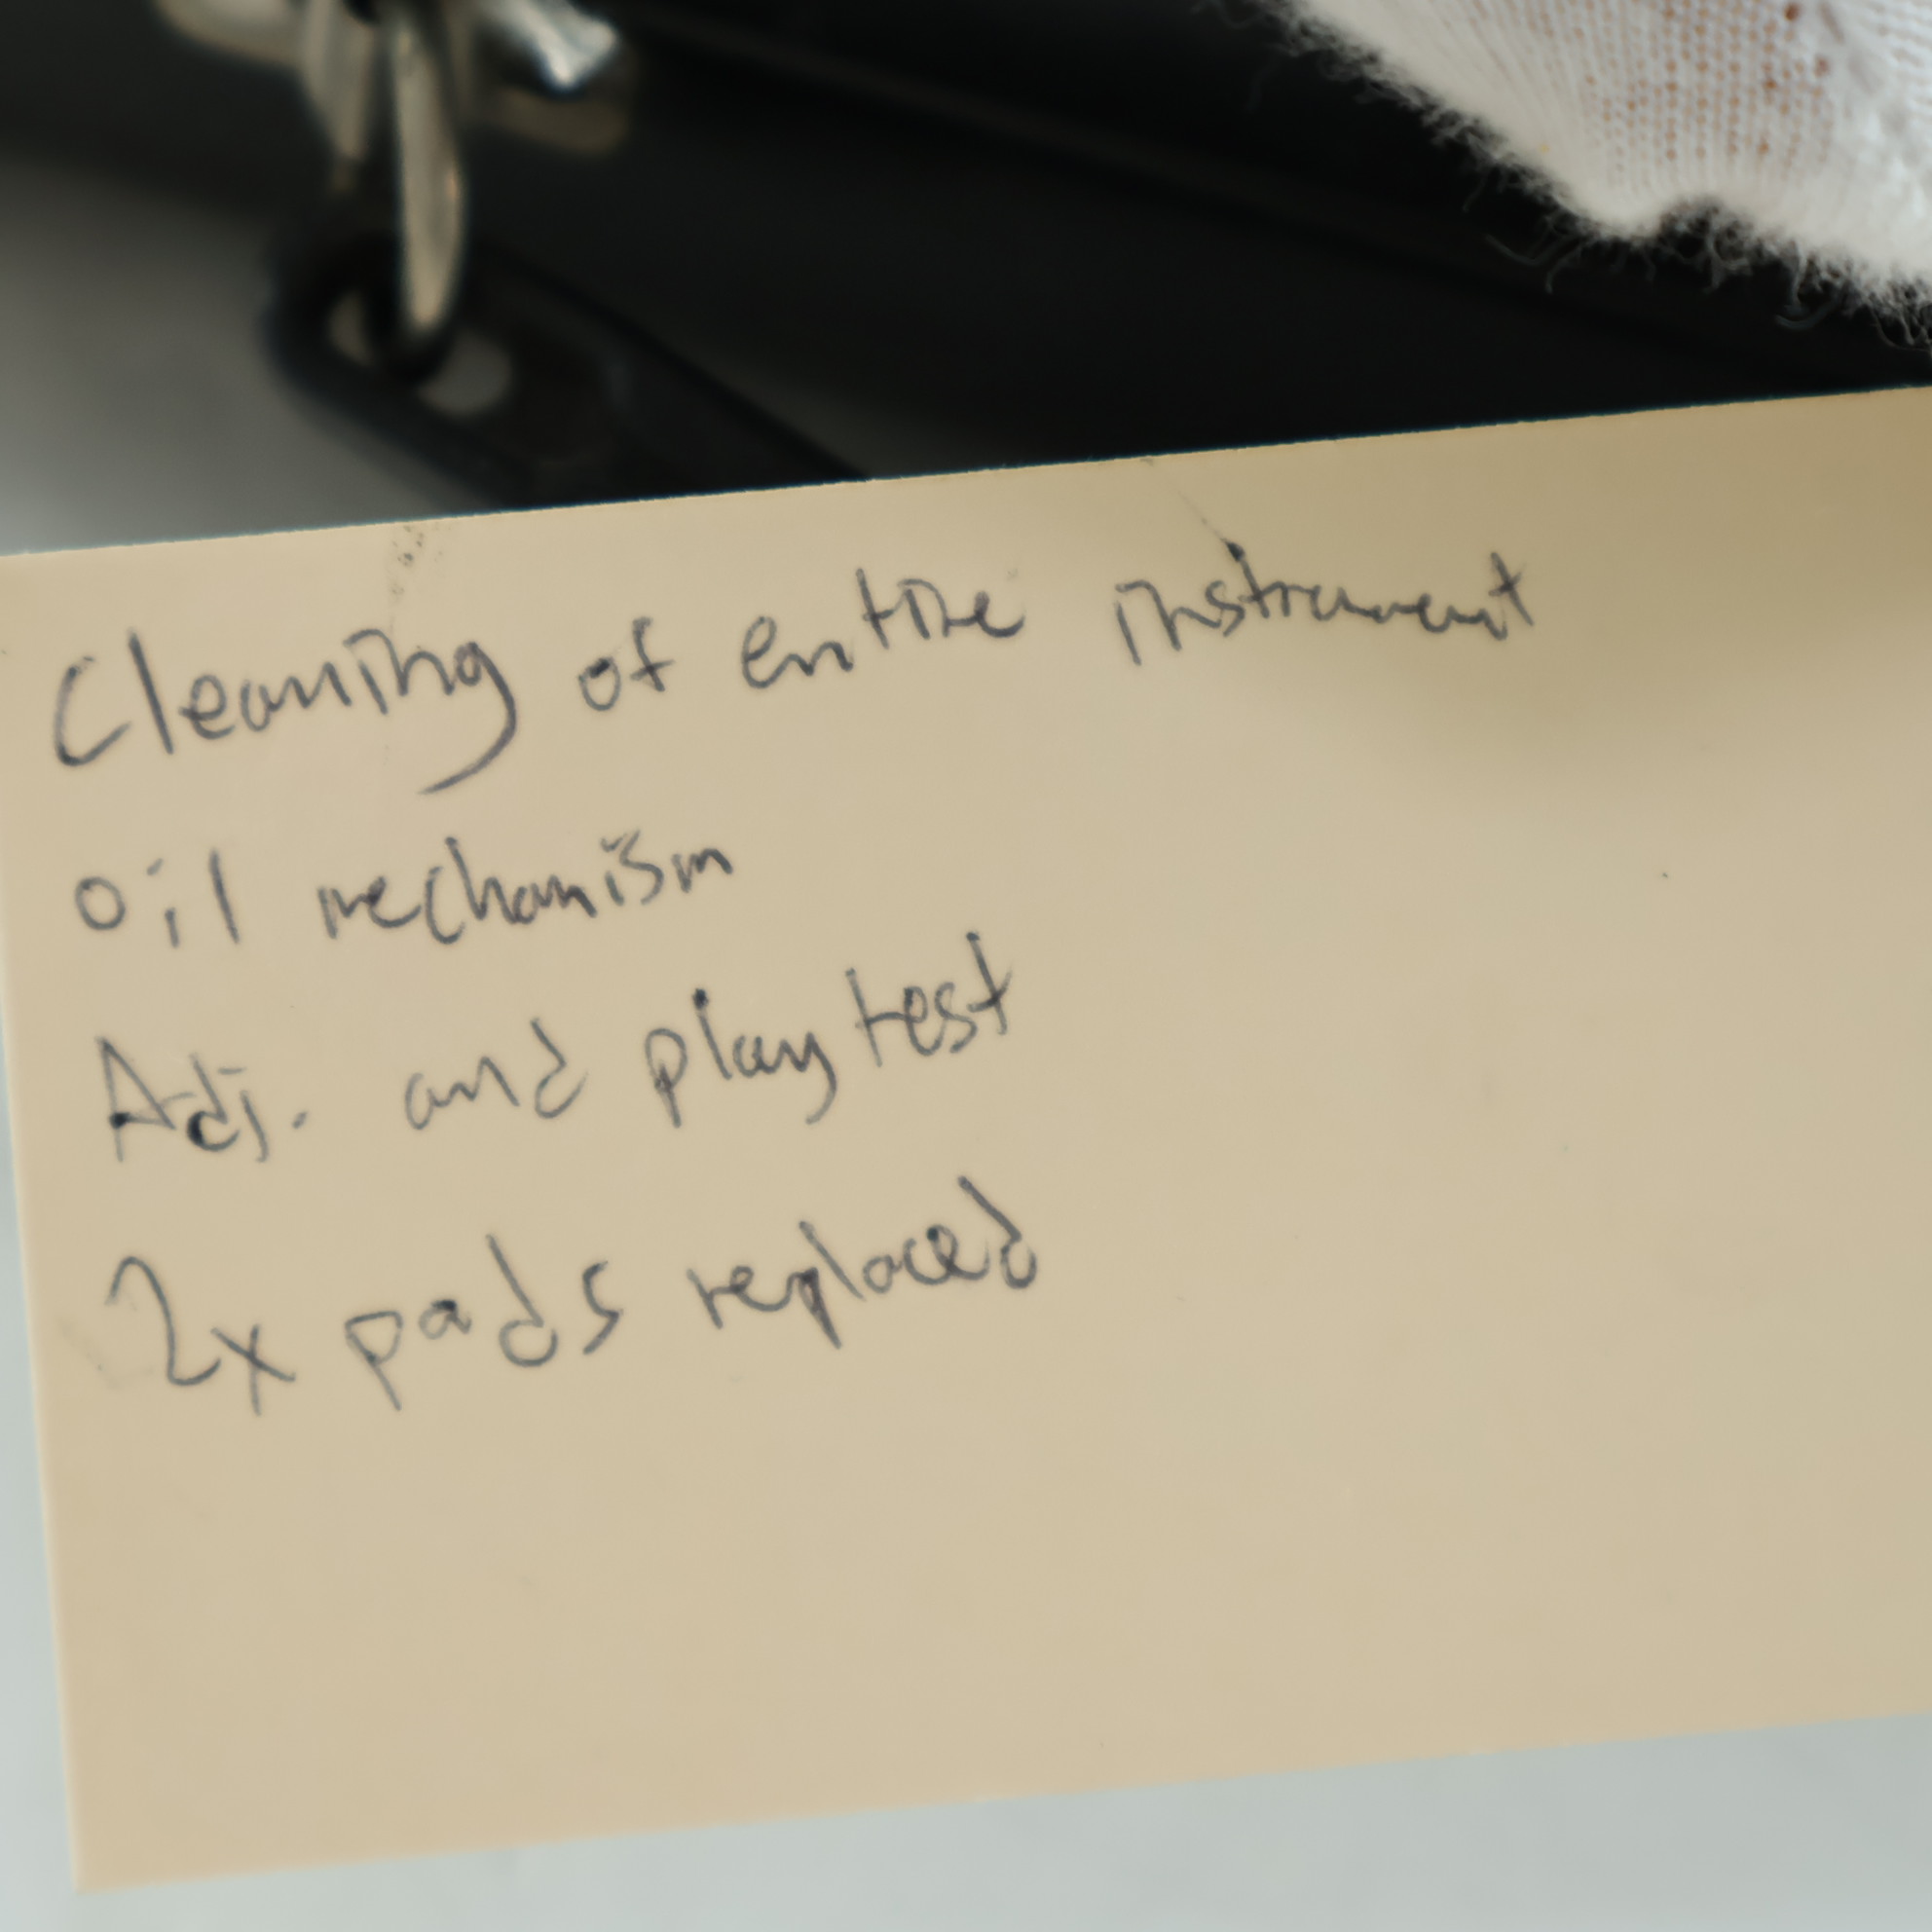 Cleaning of entire instrument
oil mechanism
Adj. and play test
2x pads replaced